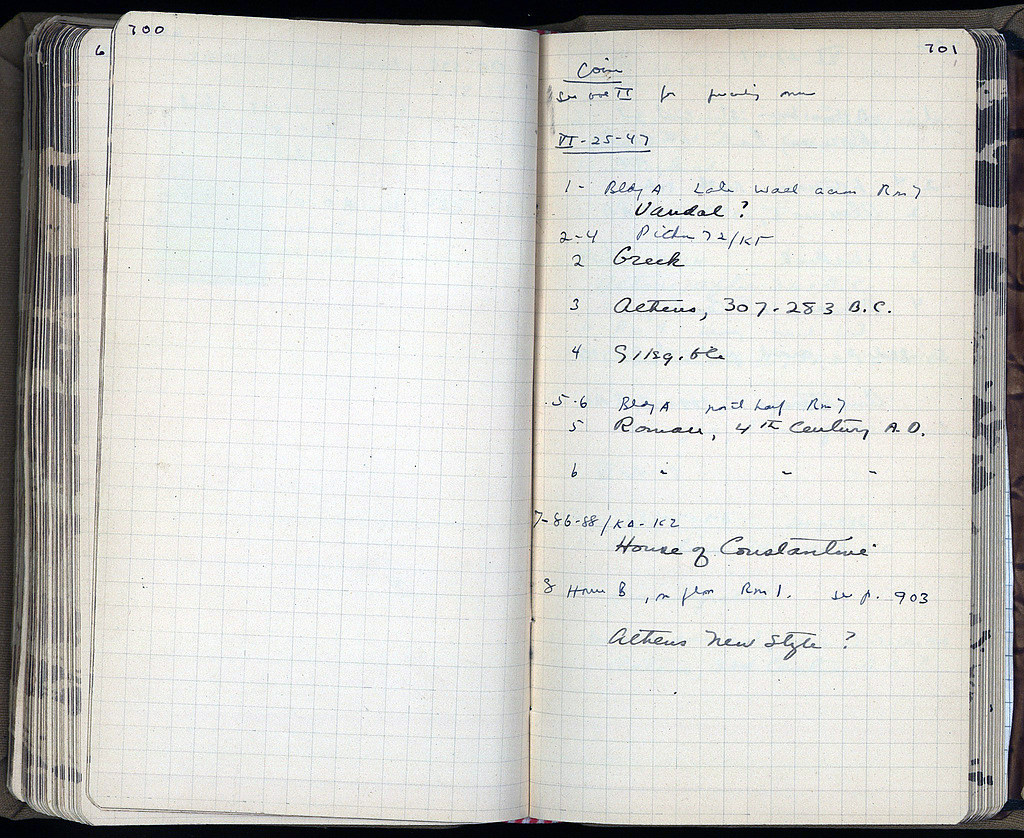 6
700
701
Coins
see vol II for preceding nos
VI-25-47
1- Bldg A Late wall across Rm 7
Vandal ?
2-4 72/ΚΕ
2 Greek
3 Athens, 307-283 B.C.
4 Illegible
5-6 Bldg A north half Rm 7
5 Roman, 4th Century A.D.
6 " " "
7-86-88/ΚΔ-ΚΖ
House of Constantine
8 House B, on floor Rm 1. see p. 903
Athens New Style ?